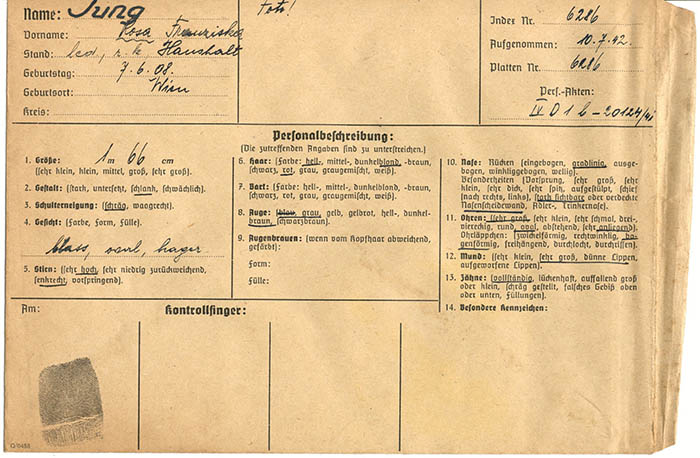 Name: Jung
Vorname: Rosa Franziska
Stand: led, r. k. Haushalt
Geburtstag: 7.6.08.
Geburtsort: Wien
Kreis:
Foto!
Index Nr. 6286
Aufgenommen: 10.7.42.
Platten Nr. 6286
Pers.-Akten:
IV D 1 b - 20124/41
Personalbeschreibung:
(Die zutreffenden Angaben sind zu unterstreichen.)
1. Größe: 1 m 66 cm
(sehr klein, klein, mittel, groß, sehr groß).
2. Gestalt: (stark, untersetzt, schlank, schwächlich).
3. Schulterneigung: (schräg, waagrecht).
4. Gesicht: (Farbe, Form, Fülle).
blass, oval, hager
5. Stirn: (sehr hoch, sehr niedrig zurückweichend,
senkrecht, vorspringend).
6. Haar: (Farbe: hell-, mittel-, dunkelblond, -braun,
schwarz, rot, grau, graugemischt, weiß).
7. Bart: (Farbe: hell-, mittel-, dunkelblond, -braun,
schwarz, rot, grau, graugemischt, weiß).
8. Auge: (blau, grau, gelb, gelbrot, hell-, dunkel-
braun, schwarzbraun).
9. Augenbrauen: (wenn vom Kopfhaar abweichend,
gefärbt):
Form:
Fülle:
10. Nase: Rücken (eingebogen, gradlinig, ausge-
bogen, winkliggebogen, wellig).
Besonderheiten (Vorsprung, sehr groß, sehr
klein, sehr dick, sehr spitz, aufgestülpt, schief
(nach rechts, links), stark sichtbare oder verdeckte
Nasenscheidewand, Adler-, Trinkernase).
11. Ohren: (sehr groß, sehr klein, sehr schmal, drei-,
viereckig, rund, oval, abstehend, sehr anliegend).
Ohrläppchen: (zwickelförmig, rechtwinklig, bo-
genförmig, freihängend, durchlocht, durchrissen).
12. Mund: (sehr klein, sehr groß, dünne Lippen,
aufgeworfene Lippen).
13. Zähne: (vollständig, lückenhaft, auffallend groß
oder klein, schräg gestellt, falsches Gebiß oben
oder unten, Füllungen).
14. Besondere Kennzeichen:
Am:
Kontrollfinger: